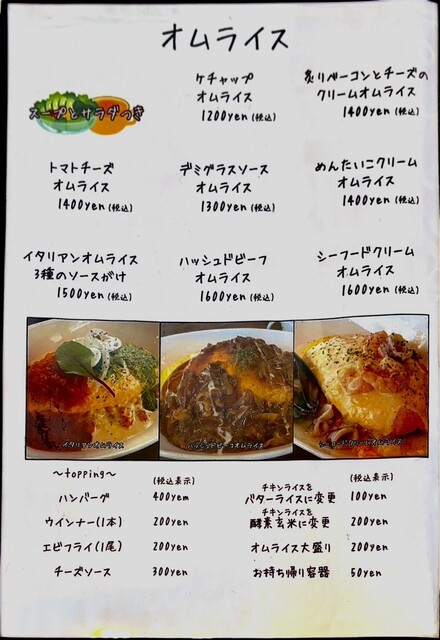 オムライス
スープとサラダつき
ケチャップ
オムライス
1200yen (税込)
炙りベーコンとチーズの
クリームオムライス
1400yen (税込)
トマトチーズ
オムライス
1400yen (税込)
デミグラスソース
オムライス
1300yen (税込)
めんたいこクリーム
オムライス
1400yen (税込)
イタリアンオムライス
3種のソースがけ
1500yen (税込)
ハッシュドビーフ
オムライス
1600yen (税込)
シーフードクリーム
オムライス
1600yen (税込)
イタリアンオムライス
ハッシュドビーフオムライス
シーフードクリームオムライス
〜topping〜
(税込表示)
ハンバーグ 400yen
ウインナー(1本) 200yen
エビフライ(1尾) 200yen
チーズソース 300yen
(税込表示)
チキンライスを
バターライスに変更 100yen
チキンライスを
酵素玄米に変更 200yen
オムライス大盛り 200yen
お持ち帰り容器 50yen